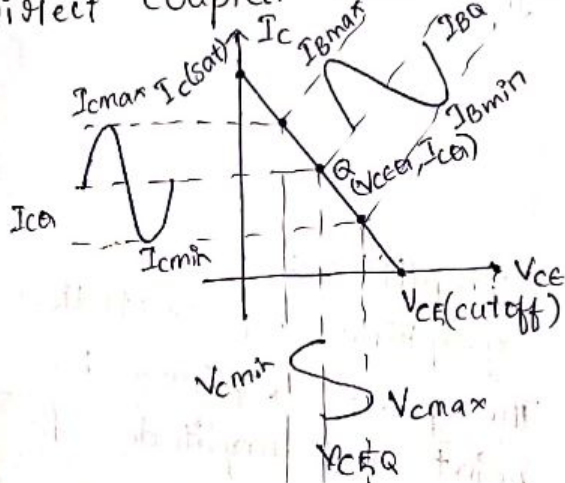 Direct coupl
Ic
IBmax
IBQ
Ic(sat)
Icmax
IBmin
Q
(VCEQ, ICQ)
ICQ
Icmin
VCE
VCE(cutoff)
Vcmin
Vcmax
VCEQ